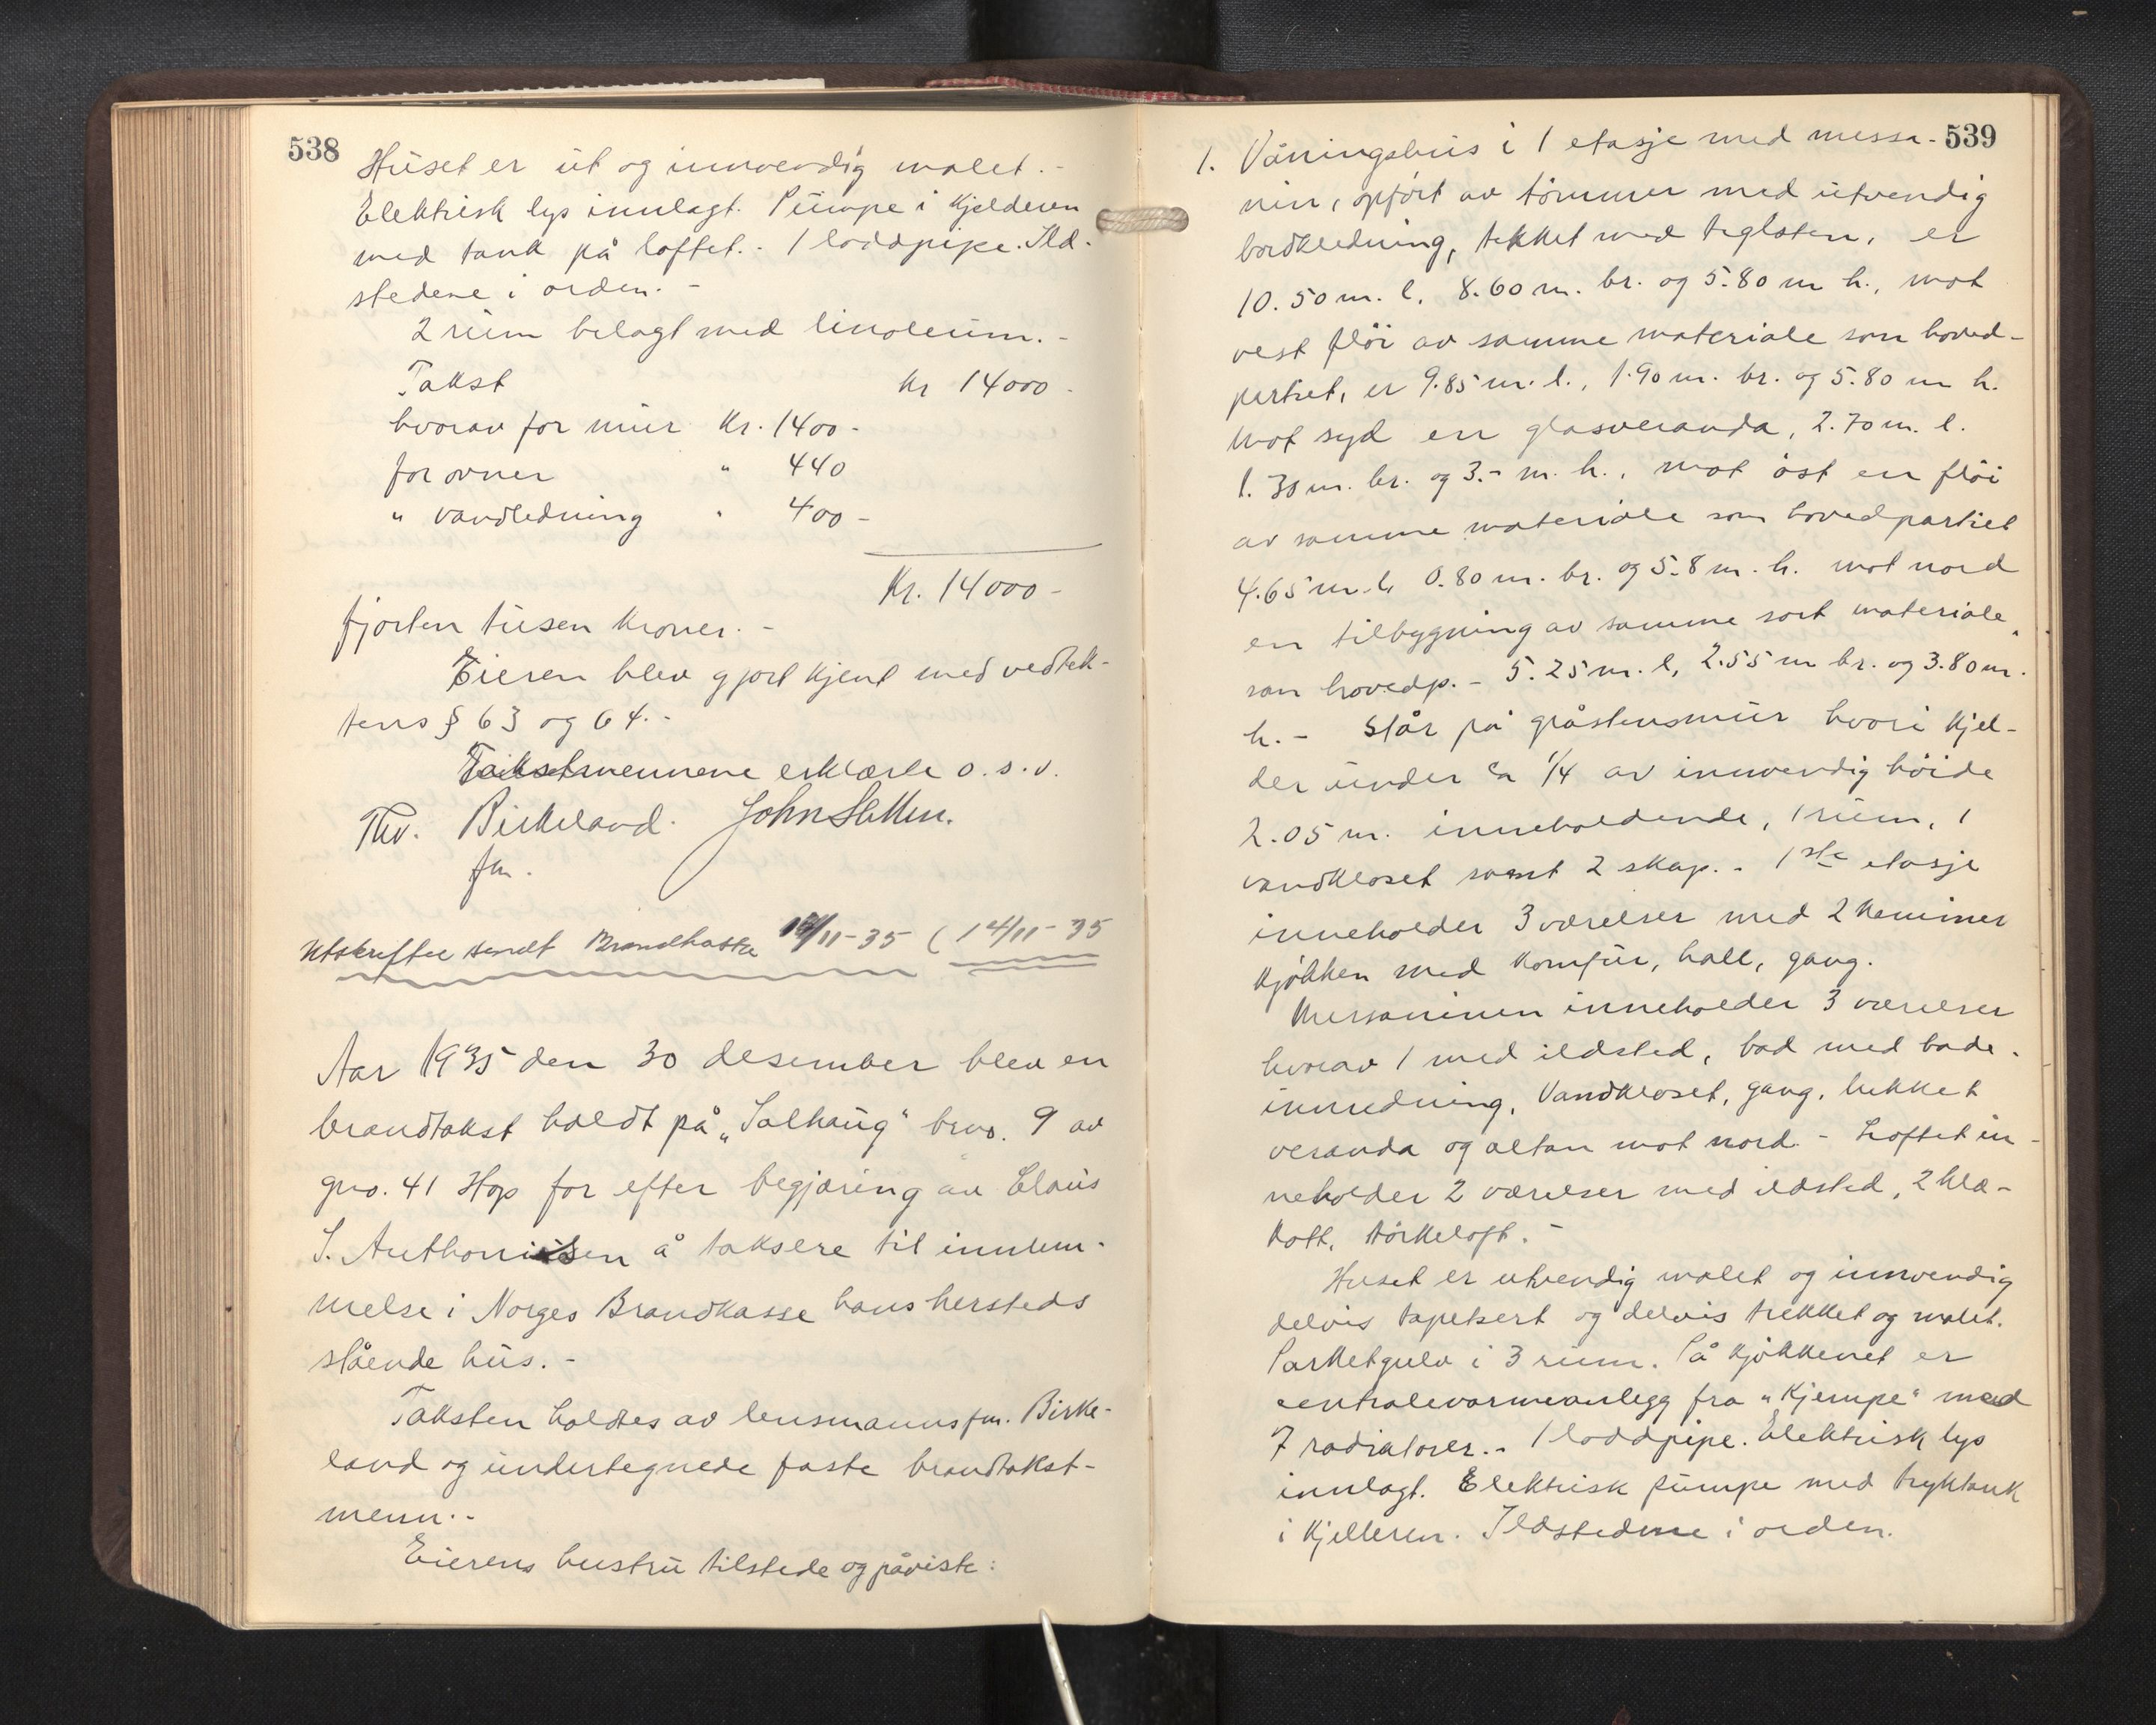 538
Huset er ut og innvendig malet. -
Elektrisk lys innlagt. Pumpe i kjelderen
med tank på loftet. - 1 loddpipe. Ild-
stedene i orden. -
2 rum belagt med linoleum. -
Takst kr 14000 -
hvorav for mur kr. 1400 -
for ovner " 440
" vandledning " 400 -
Kr. 14000 -
fjorten tusen kroner. -
Eieren blev gjort kjent med vedtek-
tens § 63 og 64. -
Takstmennene erklærte o. s. v.
Thv. Birkeland. John Sletten.
fm.
Utskrifter sendt Brandkassa /11-35 ( 14/11-35
Aar 1935 den 30 desember blev en
brandtakst holdt på „Solhaug" brno. 9 av
gno. 41 Hop for efter begjæring av Claus
S. Anthonisen å taksere til innlem-
melse i Norges Brandkasse hans hersteds
stående hus. -
Taksten holdtes av lensmannsfm. Birke-
land og undertegnede faste brandtakst-
menn. -
Eierens hustru tilstede og påviste:
539
1. Våningshus i 1 etasje med messa-
nin, opført av tømmer med utvendig
bordkledning, tekket med teglsten, er
10.50 m. l. 8.60 m. br. og 5.80 m h., mot
vest fløi av samme materiale som hoved-
partiet, er 9.85 m. l., 1.90 m. br. og 5.80 m h.
Mot syd en glasveranda, 2.70 m. l.
1.30 m. br. og 3.- m. h., mot øst en fløi
av samme materiale som hovedpartiet
4.65 m. l. 0.80 m. br. og 5.8 m. h. mot nord
en tilbygning av samme sort materiale
som hovedp. - 5.25 m. l, 2.55 m br. og 3.80 m.
h. - Står på gråstensmur hvori kjel-
der under ca 1/4 av innvendig høide
2.05 m. inneholdende, 1 rum, 1
vandkloset samt 2 skap. - 1ste etasje
inneholder 3 værelser med 2 kaminer
kjøkken med komfur, hall, gang.
Messaninen inneholder 3 værelser
hvorav 1 med ildsted, bad med bade-
innredning, Vandkloset, gang, lukket
veranda og altan mot nord. - Loftet in-
neholder 2 værelser med ildsted, 2 kle-
kott, tørkeloft. -
Huset er utvendig malet og innvendig
delvis tapetsert og delvis trekket og malt.
Parketgulv i 3 rum. På kjøkkenet er
centralevarmeanlegg fra „Kjempe" med
7 radiatorer. - 1 loddpipe. Elektrisk lys
innlagt. Elektrisk pumpe med tryktank
i kjelleren. Ildstedene i orden.